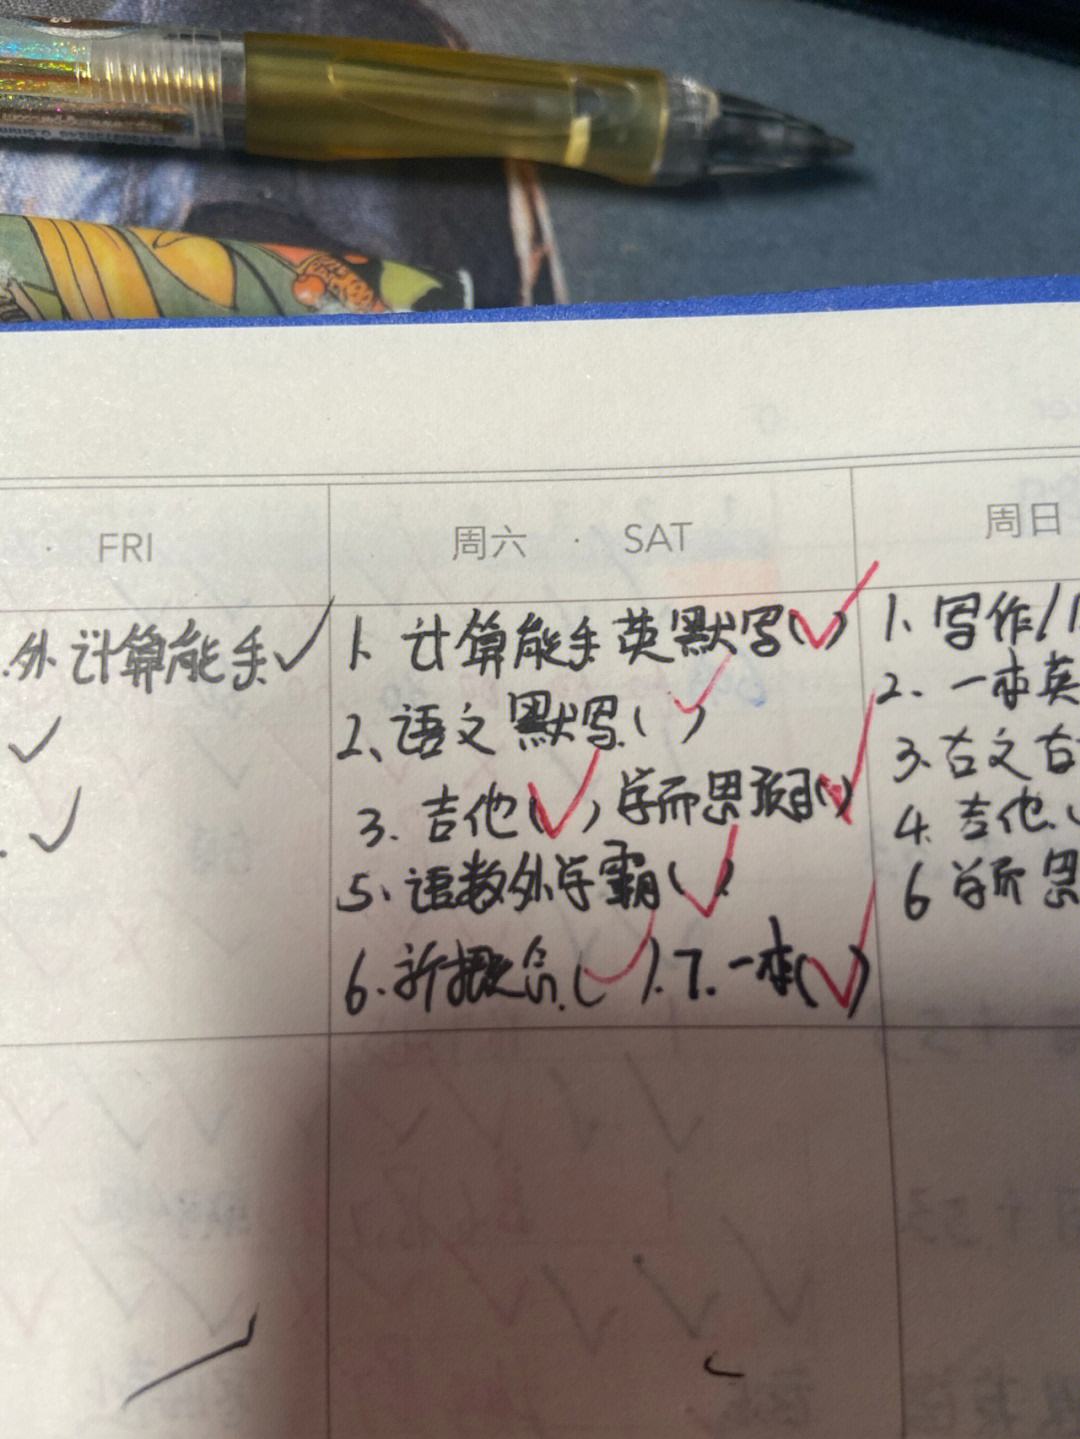 FRI
周六 · SAT
周日
外 计算能手✓
✓
✓
1、计算能手 英默写(✓)
2、语文默写(✓)
3. 吉他(✓) 学而思 (✓)
5、语数外学霸(✓)
6.新概念(✓).7.一本(✓)
1、写作/
2. 一本英
3.古文古
4. 吉他(
6 学而思